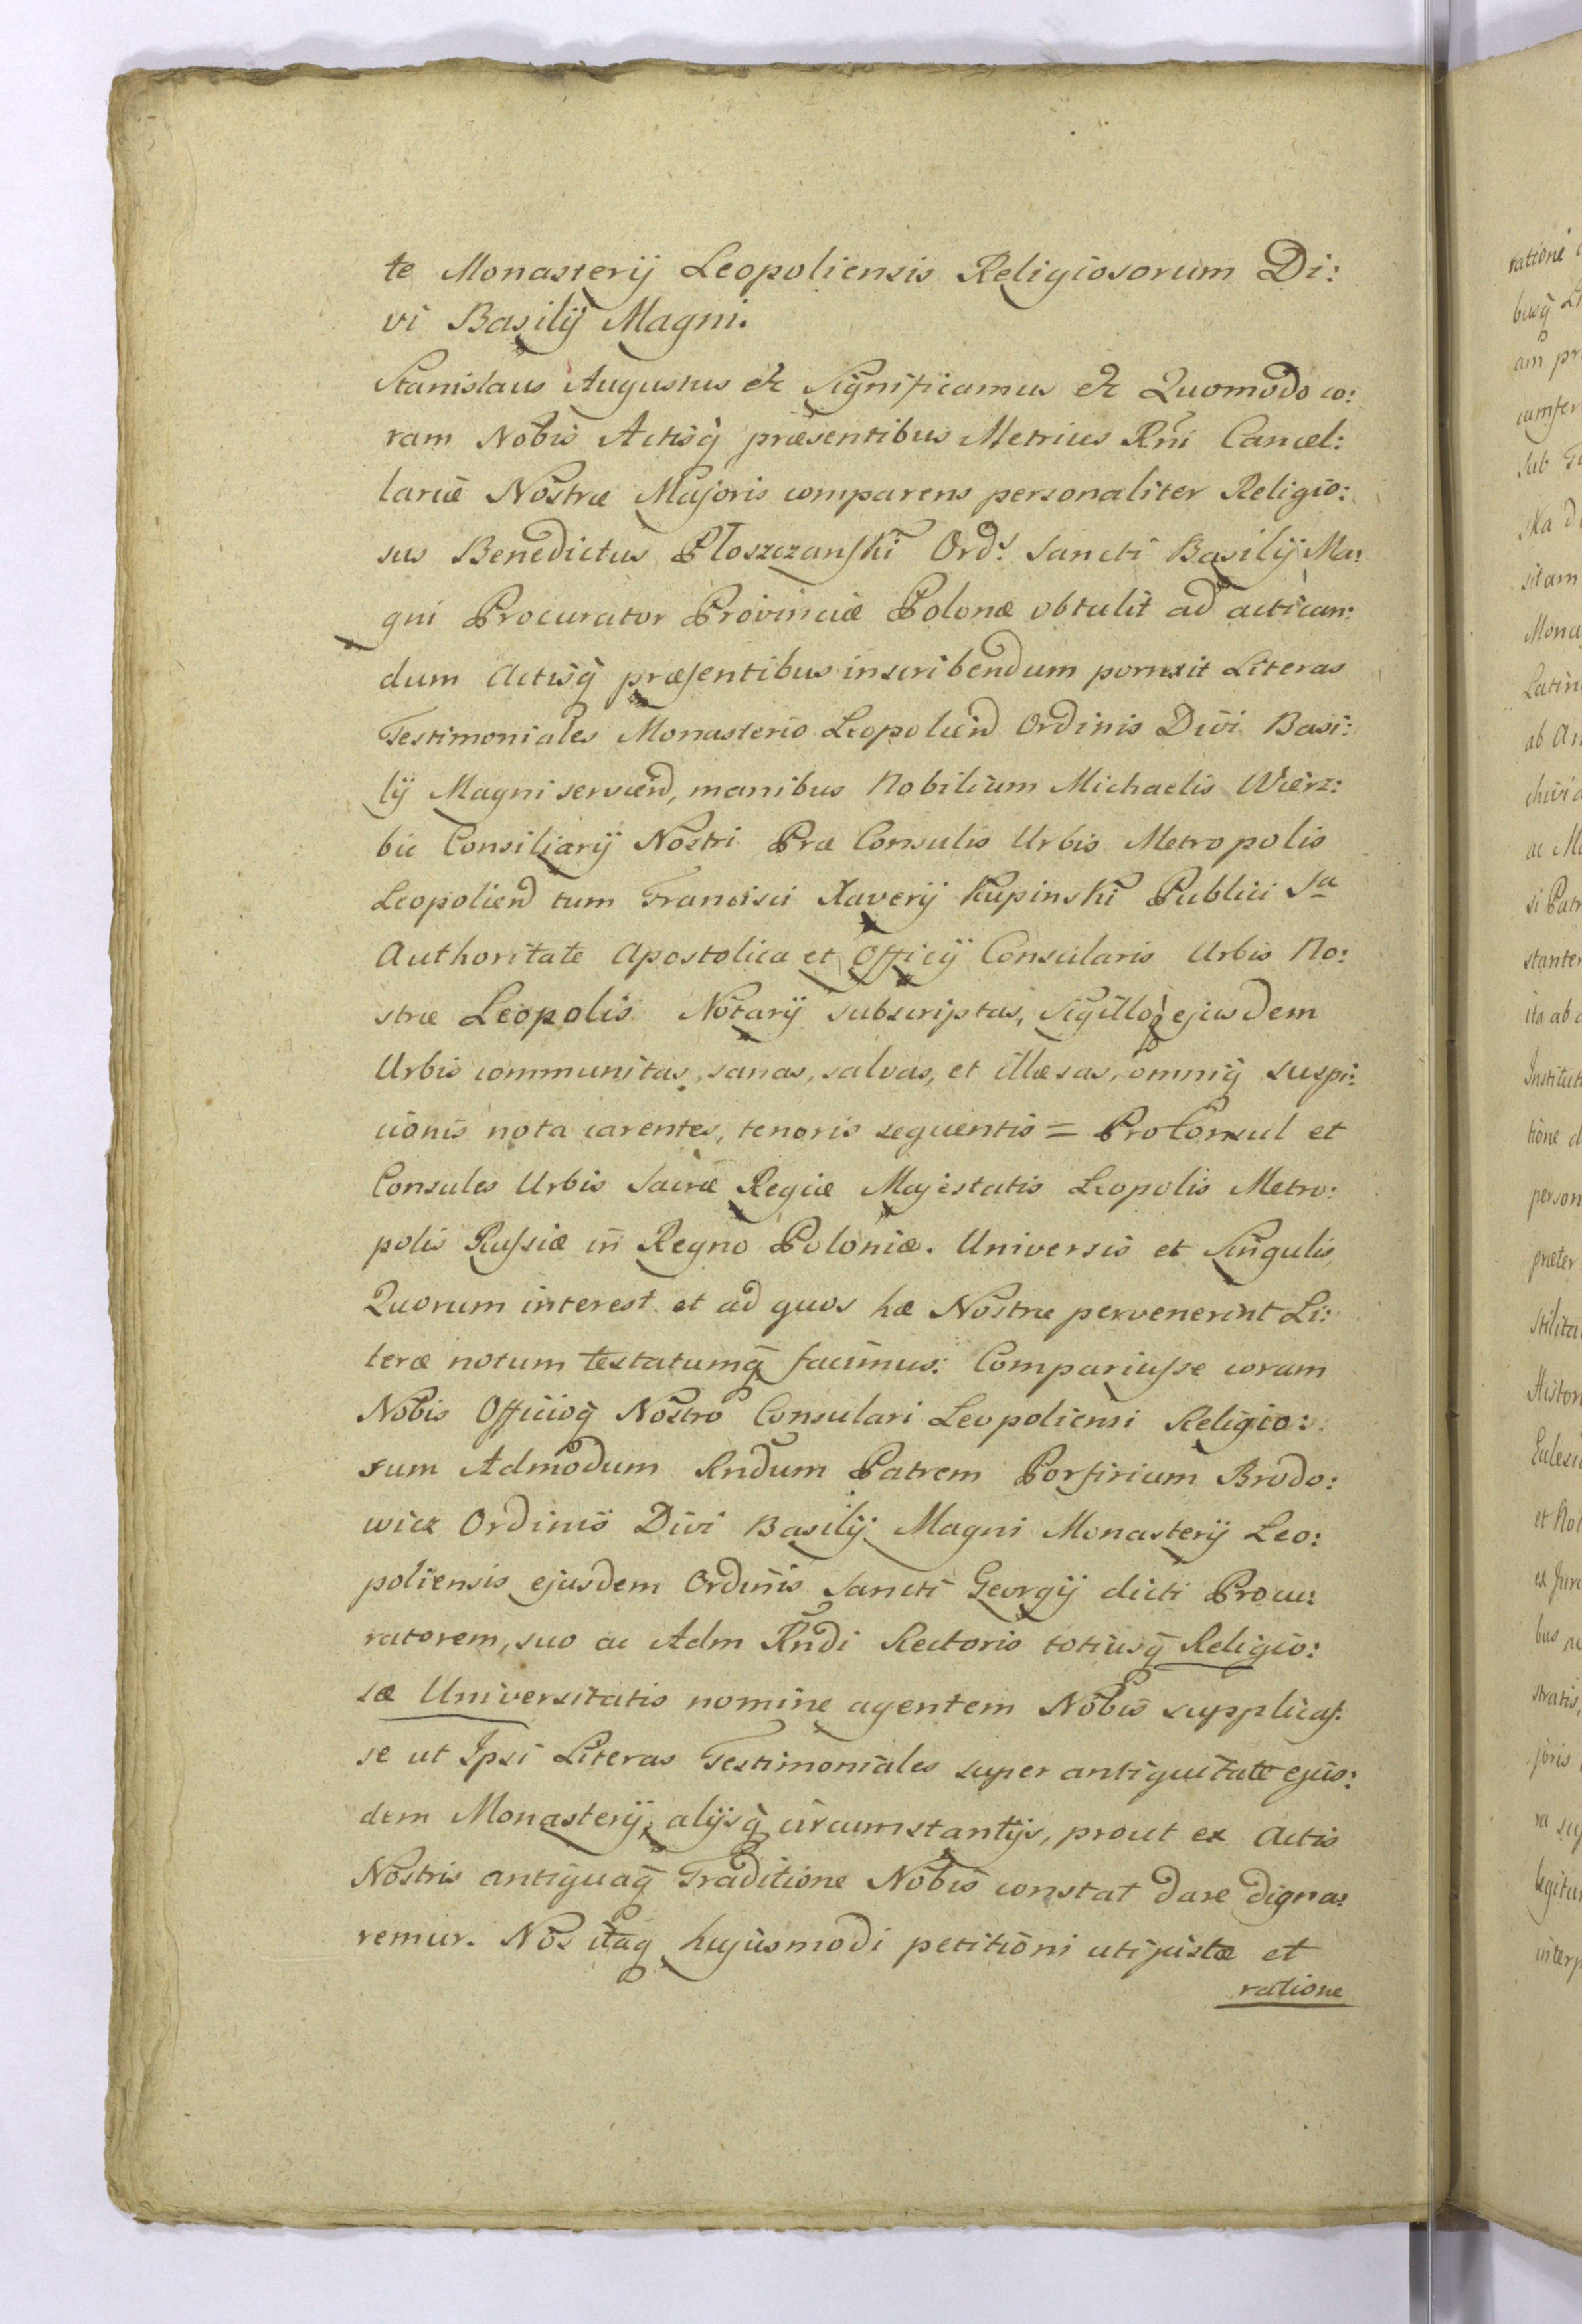 te Monasterij Leopoliensis Religiosorum Di:
vi Basilij Magni.
Stanislaus Augustus etc Significamus etc Quomodo co:
ram Nobis Actisq̃ præsentibus Metrices Rñi Cancel:
lariæ Nostræ Majoris comparens personaliter Religio:
sus Benedictus Płoszczanski Ord.s Sancti Basilij Ma:
gni Procurator Provinciæ Polonæ obtulit ad actican:
dum Actisq̃ præsentibus inscribendum porrexit Literas
Testimoniales Monasterio Leopolien̄ Ordinis Divi Basi:
lij Magni servien̄, manibus Nobilium Michaelis Wierz:
bic Consiliarij Nostri Præ Consulis Urbis Metropolis
Leopolien̄ tum Francisci Xaverij Kupinski Publici Sa
Authoritate Apostolica et Officij Consularis Urbis No:
stræ Leopolis Notarij subscriptas, Sigilloq̃ ejusdem
Urbis communitas, sanas, salvas, et illæsas, omniq̃ suspi:
cionis nota carentes, tenoris sequentis = ProConsul et
Consules Urbis Sacræ Regiæ Majestatis Leopolis Metro:
polis Russiæ in Regno Poloniæ. Universis et Singulis,
Quorum interest et ad quos hæ Nostræ pervenerint Li:
teræ notum testatumq̃ facimus: Compariusse coram
Nobis Officioq̃ Nostro Consulari Leopoliensi Religio:
sum Admodum Rndum Patrem Porfirium Brodo:
wicz Ordinis Divi Basilij Magni Monasterij Leo:
poliensis ejusdem Ordinis Sancti Georgij dicti Procu:
ratorem, suo ac Adm Rñdi Rectoris totiusq̃ Religio:
sæ Universitatis nomine agentem Nobis supplicas:
se ut Ipsi Literas Testimoniales super antiquitate ejus:
dem Monasterij, alijsq̃ circumstantijs, prout ex Actis
Nostris antiquaq̃ Traditione Nobis constat dare digna:
remur. Nos itaq̃ hujusmodi petitioni uti justæ et
ratione